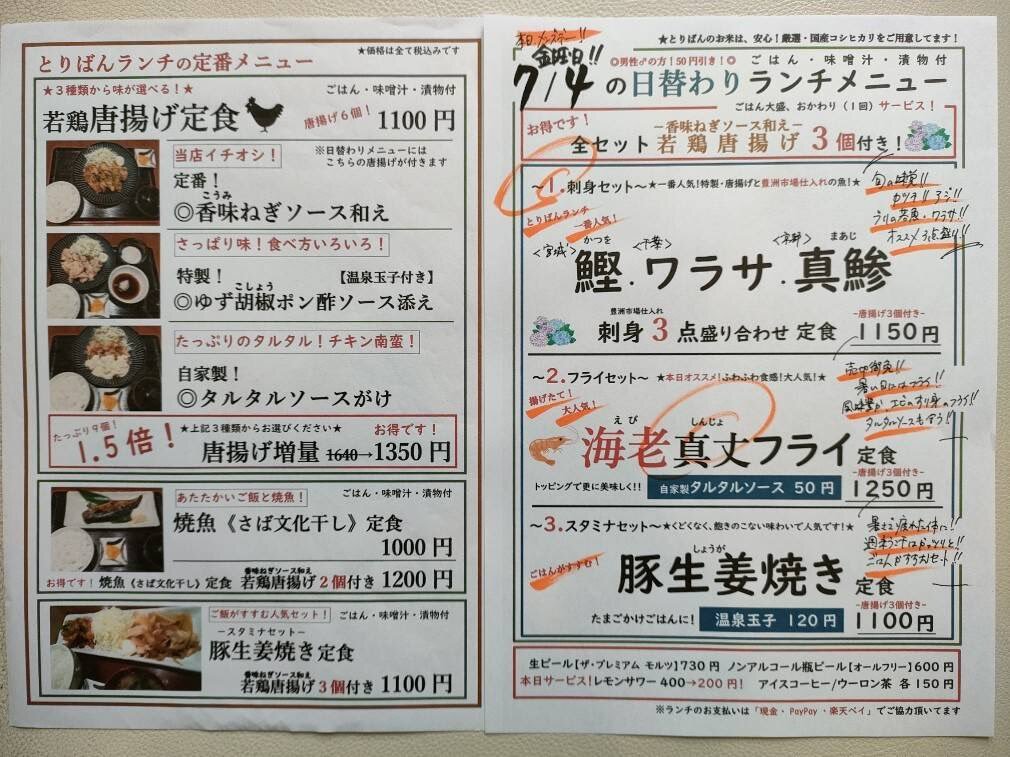 ★価格は全て税込みです
とりばんランチの定番メニュー
★３種類から味が選べる!★
ごはん・味噌汁・漬物付
若鶏唐揚げ定食
唐揚げ６個!
1100円
当店イチオシ!
※日替わりメニューには
こちらの唐揚げが付きます
定番!
こうみ
◎香味ねぎソース和え
さっぱり味!食べ方いろいろ!
特製!
【温泉玉子付き】
こしょう
◎ゆず胡椒ポン酢ソース添え
たっぷりのタルタル!チキン南蛮!
自家製!
◎タルタルソースがけ
たっぷり９個!
1.5倍!
★上記３種類からお選びください★
お得です!
唐揚げ増量 1640→1350円
あたたかいご飯と焼魚!
ごはん・味噌汁・漬物付
焼魚《さば文化干し》定食
1000円
香味ねぎソース和え
お得です! 焼魚《さば文化干し》定食 若鶏唐揚げ２個付き 1200円
ご飯がすすむ人気セット!
ごはん・味噌汁・漬物付
－スタミナセット－
豚生姜焼き定食
香味ねぎソース和え
若鶏唐揚げ３個付き 1100円
★とりばんのお米は、安心!厳選・国産コシヒカリをご用意してます!
金曜日!!
◎男性♂の方!50円引き!◎
ごはん・味噌汁・漬物付
7/4の日替わりランチメニュー
ごはん大盛、おかわり(１回)サービス!
お得です!
－香味ねぎソース和え－
全セット若鶏唐揚げ３個付き!
～1.刺身セット～★一番人気!特製・唐揚げと豊洲市場仕入れの魚!★
とりばんランチ
一番人気!
旬の味覚!!
カツオ!!アジ!!
オススメ3点盛り!!
<宮城>
<千葉>
<京都>
かつを
まあじ
鰹・ワラサ・真鯵
豊洲市場仕入れ
刺身３点盛り合わせ 定食
-唐揚げ3個付き-
1150円
～2.フライセット～★本日オススメ!ふわふわ食感!大人気!★
揚げたて!
大人気!
暑い日にはフライ!
風味豊か、エビのすり身のフライ!!
タルタルソースも合う!!
えび
しんじょ
海老真丈フライ 定食
トッピングで更に美味しく!!
自家製タルタルソース 50円
-唐揚げ3個付き-
1250円
～3.スタミナセット～★くどくなく、飽きのこない味わいで人気です!★
ごはんがすすむ!
暑さで疲れた体に!!
週末ランチはガッツリと!!
ごはんがすすむセット!!
しょうが
豚生姜焼き 定食
たまごかけごはんに!
温泉玉子 120円
-唐揚げ3個付き-
1100円
生ビール【ザ・プレミアム モルツ】730円 ノンアルコール瓶ビール【オールフリー】600円
本日サービス!レモンサワー400→200円! アイスコーヒー/ウーロン茶 各150円
※ランチのお支払いは「現金・PayPay・楽天ペイ」でご協力頂いてます